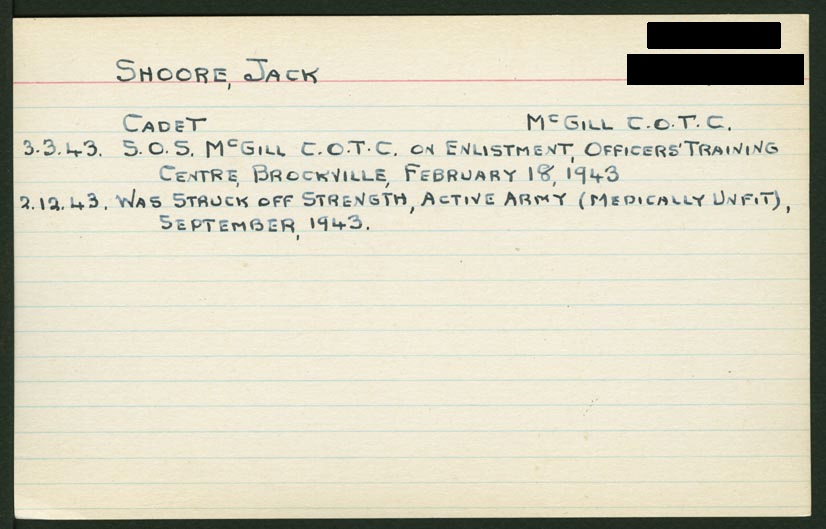 SHOORE, JACK
CADET McGILL C.O.T.C.
3.3.43. S.O.S. McGILL C.O.T.C. ON ENLISTMENT, OFFICERS' TRAINING
CENTRE, BROCKVILLE, FEBRUARY 18, 1943
2.12.43. WAS STRUCK OFF STRENGTH, ACTIVE ARMY (MEDICALLY UNFIT),
SEPTEMBER, 1943.